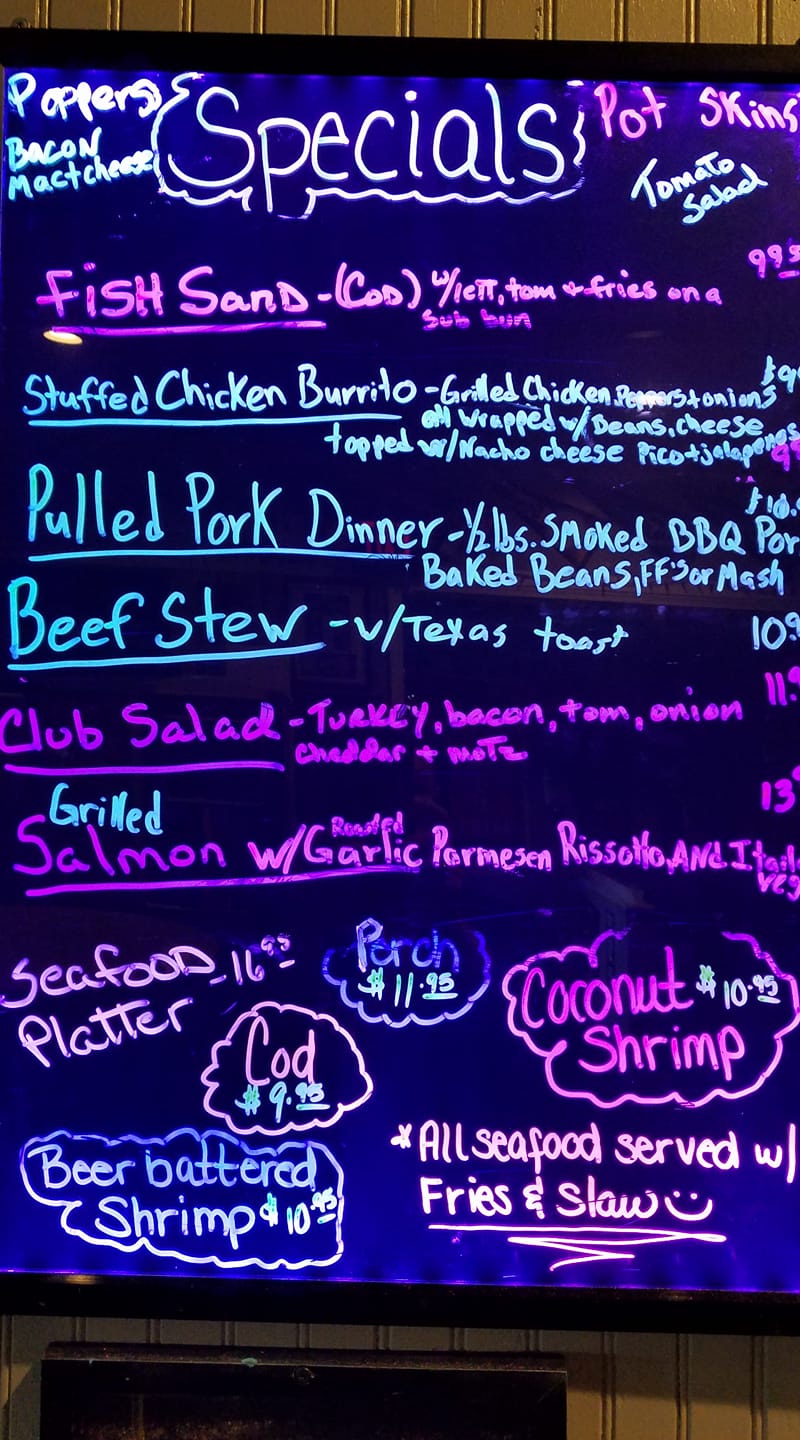 Poppers
Specials
Pot Skins
Bacon
Mac+cheese
Tomato
Salad
Fish Sand-(Cod) w/lett, tom + fries on a
Sub bun
Stuffed Chicken Burrito - Grilled Chicken, Peppers+onions
all wrapped w/Beans, cheese
topped w/Nacho cheese Pico+jalapenos
Pulled Pork Dinner - 1/2 lbs. Smoked BBQ
Baked Beans, FF's or Mash
Beef Stew - w/Texas toast
Club Salad - Turkey, bacon, tom, onion
cheddar + motz
Grilled
Salmon w/Roasted Garlic Parmesen Rissotto, And
Seafood - 16.95
Platter
Perch
$11.95
Coconut $10.95
Shrimp
Cod
$9.95
Beer battered
Shrimp $10.95
*All seafood served w/
Fries & Slaw